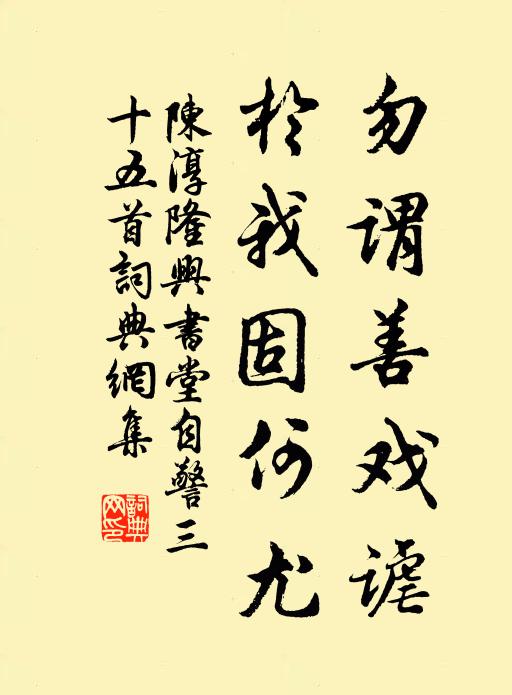 勿谓善戏谑
於我固何尤
陳淳隆興書堂自警三
十五首詞典網集
詞典
网印